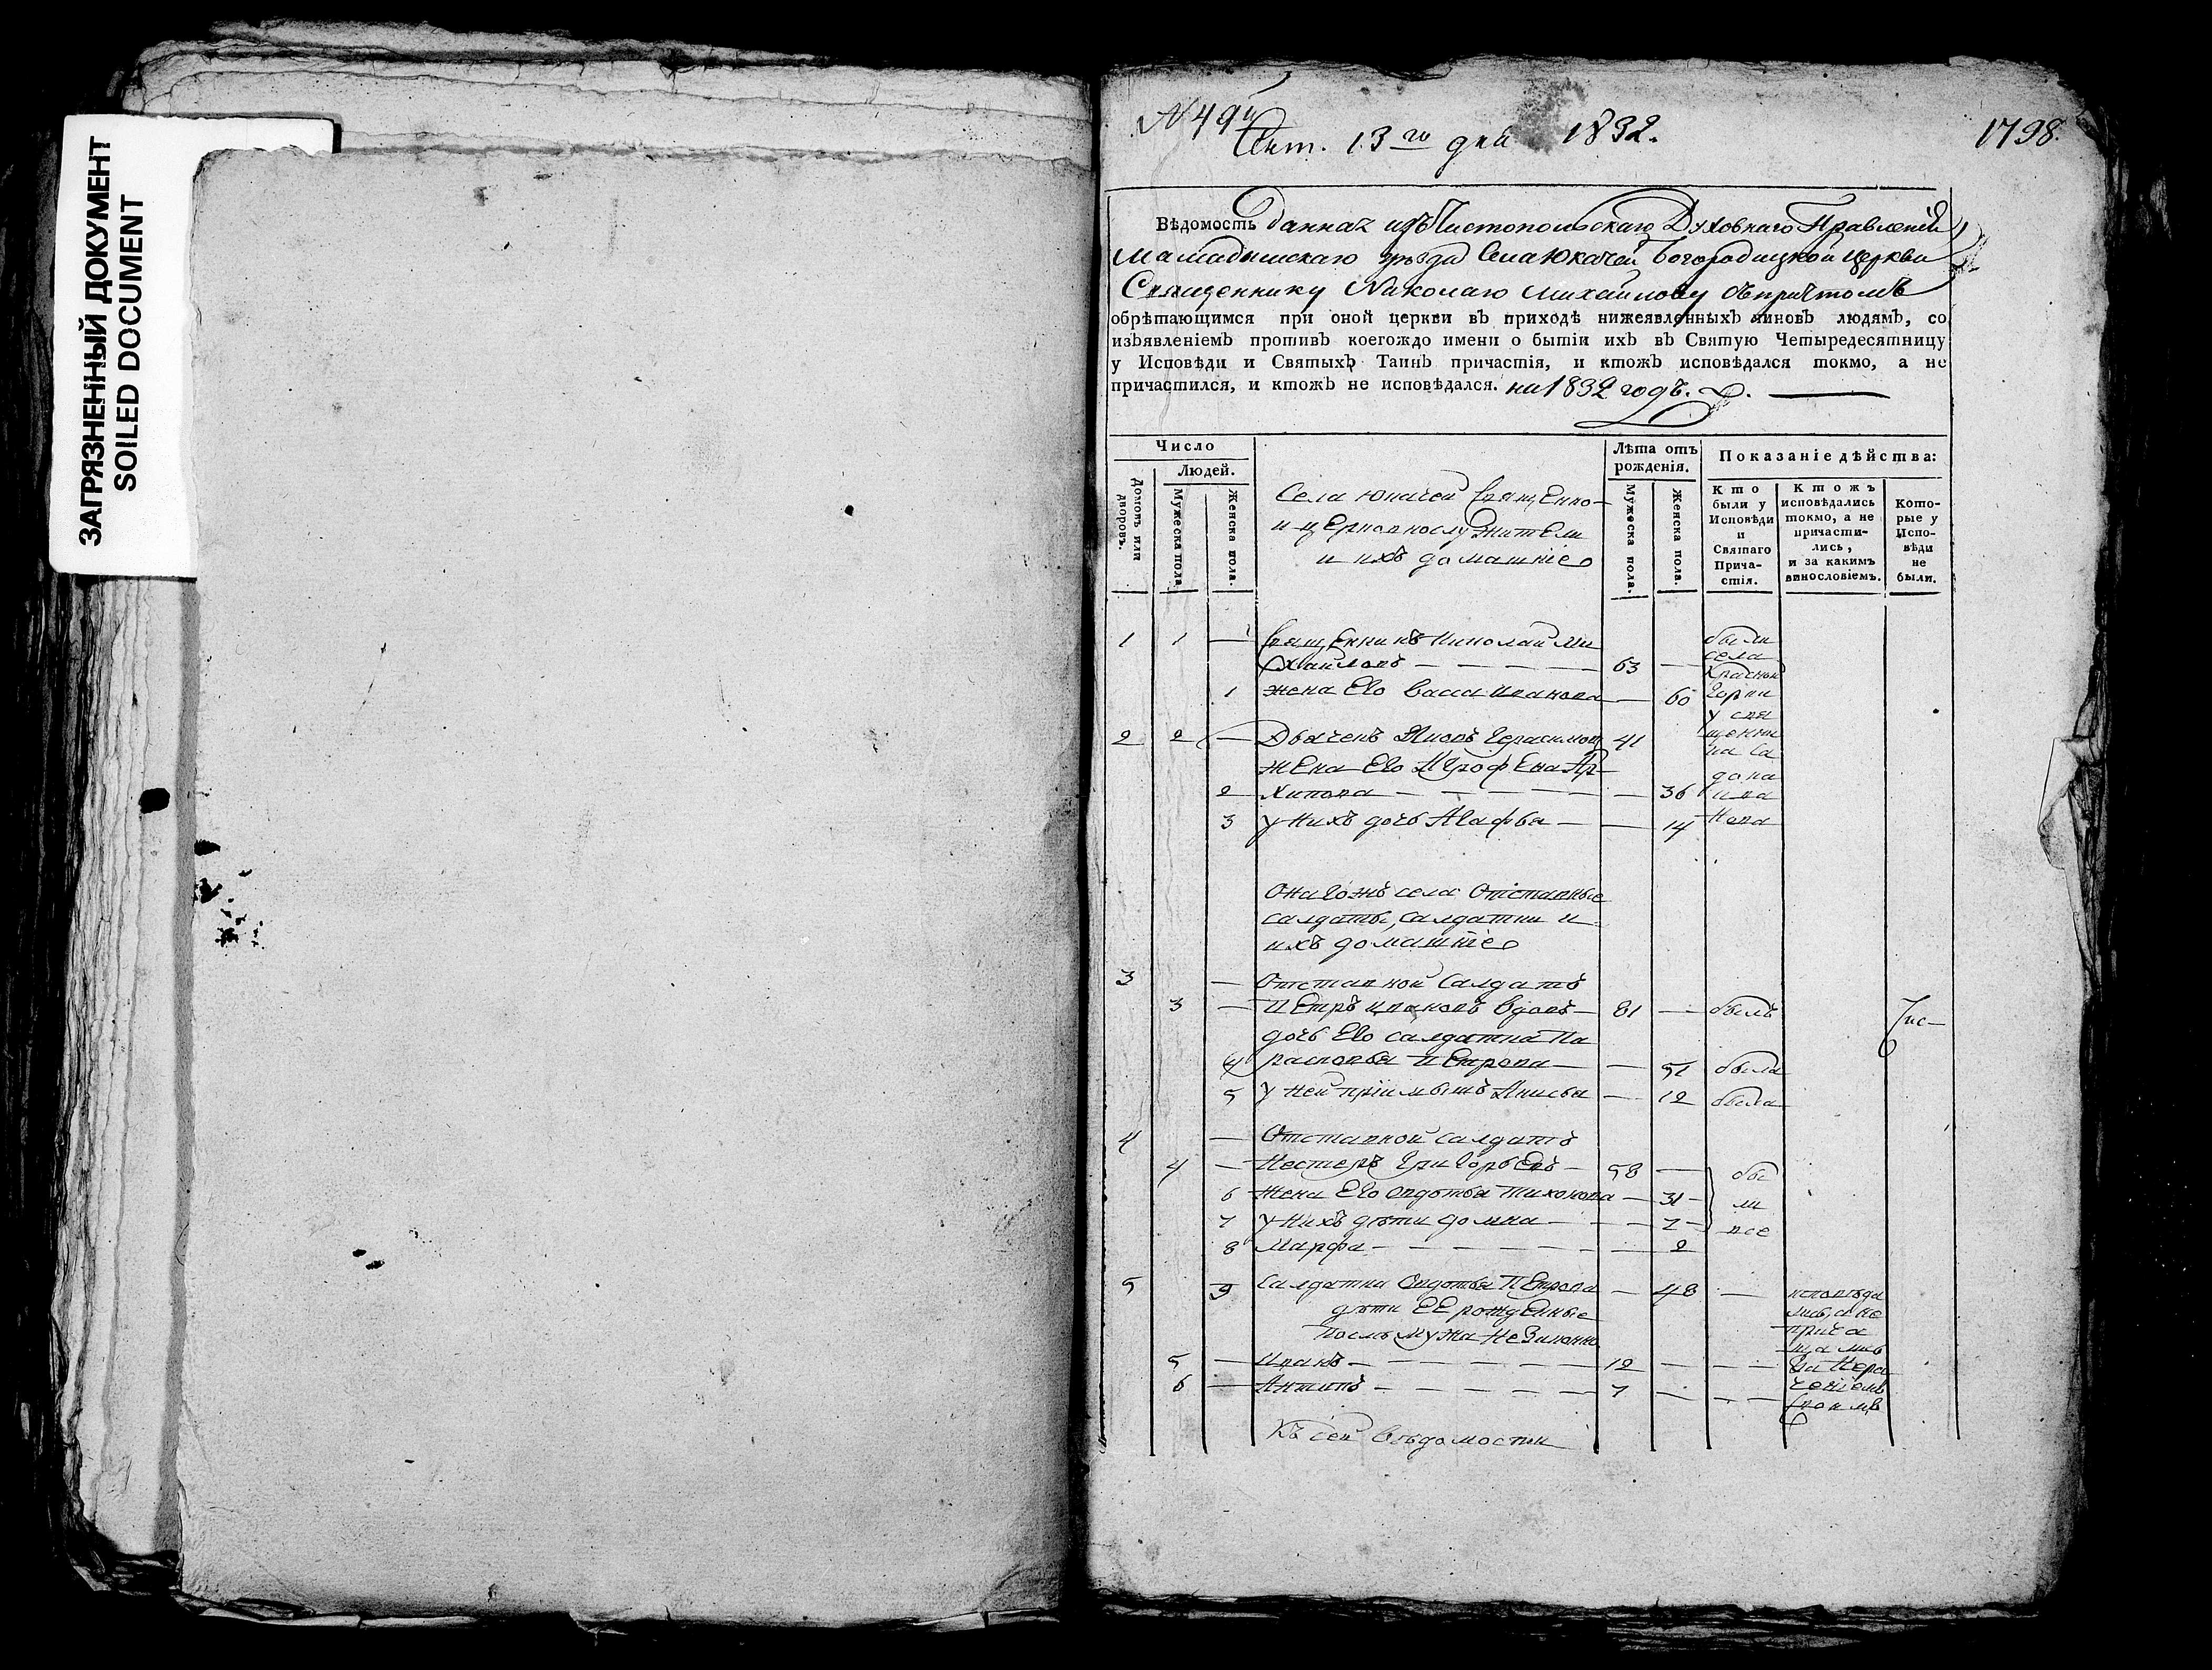 ЗАГРЯЗНЕННЫЙ ДОКУМЕНТ
SOILED DOCUMENT
N 49й
Сент. 13го дня 1832.
1798.
Вѣдомость данная изъ Чистопольскаго Духовнаго Правленія
Мамадышскаго уѣзда Села Юкачей Богородицкой церкви
Священнику Николаю Михайлову съ причтомъ
обрѣтающимся при оной церкви въ приходѣ нижеявленныхъ чиновъ людямъ, со
изъявленіемъ противъ коегождо имени о бытіи ихъ въ Святую Четыредесятницу
у Исповѣди и Святыхъ Таинъ причастія, и ктожъ исповѣдался токмо, а не
причастился, и ктожъ не исповѣдался. на 1832 годъ.
Число
Людей.
Домовъ или дворовъ.
Мужеска пола.
Женска пола.
Села Юкачей Священно-
и церковнослужители
и ихъ домашніе
Лѣта отъ рожденія.
Мужеска пола.
Женска пола.
Показаніе дѣйства:
Кто были у Исповѣди и Святаго Причастія.
Ктожъ исповѣдались токмо, а не причастились, и за какимъ винословіемъ.
Которые у Исповѣди не были.
1 1 — Священникъ Николай Ми
хайловъ — — — — 63 —
1 жена Его Васса Иванова — 60
были
села
Красной
Горки
у свя
щенни
ка Са
2 2 — Дьячекъ Яковъ Герасимов 41
жена Его Агрофена Ар
2 хипова — — — — — 36
3 у нихъ дочь Агафья — — 14
Онагожъ села Отставные
салдаты, салдатки и
ихъ домашніе
3 — Отставной Салдатъ
3 — Петръ Ивановъ вдовъ — 81 — былъ
дочь Его салдатка Па
4 расковья Петрова — — 51 была
5 у ней пріимышъ Анисья — 12 была
4 — Отставной салдатъ
4 — Нестеръ Григорьевъ — 58 —
6 жена Его Федотья Тихонова — 31 —
7 у нихъ дѣти Домна — — 7 —
8 Марфа — — — — — 2
бы
ли
все
5 9 Салдатка Федотья Петрова — 48 —
дѣти ЕЕ рожденные
послѣ мужа незаконно
5 — Иванъ — — — — 12 — —
6 — Антипъ — — — — 7 — —
исповѣда
лись, а не
прича
щались
за нера
ченіемъ
своимъ
Къ сей вѣдомости